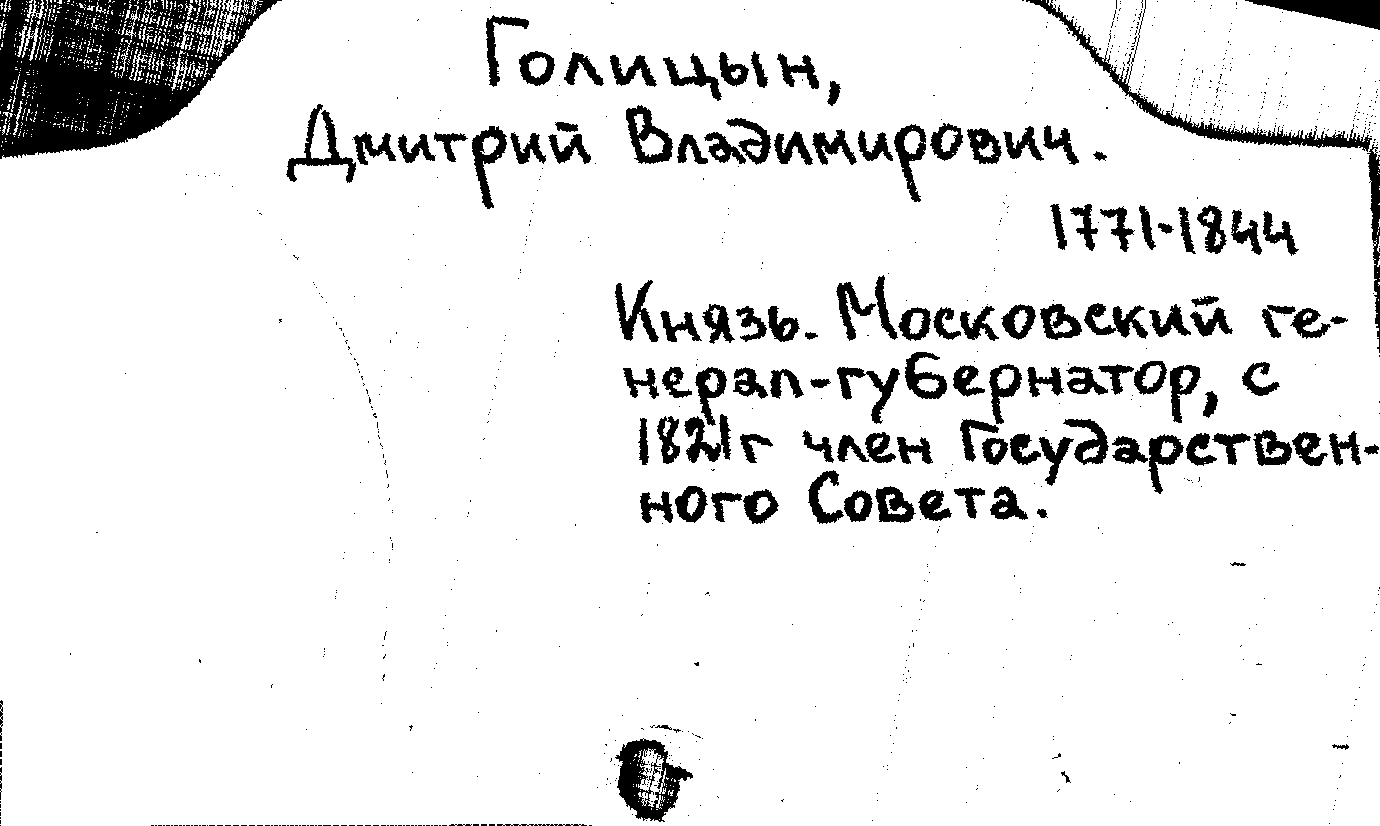 Голицын,
Дмитрий Владимирович.
1771-1844
Князь. Московский ге-
нерал-губернатор, с
1821г член Государствен-
ного Совета.